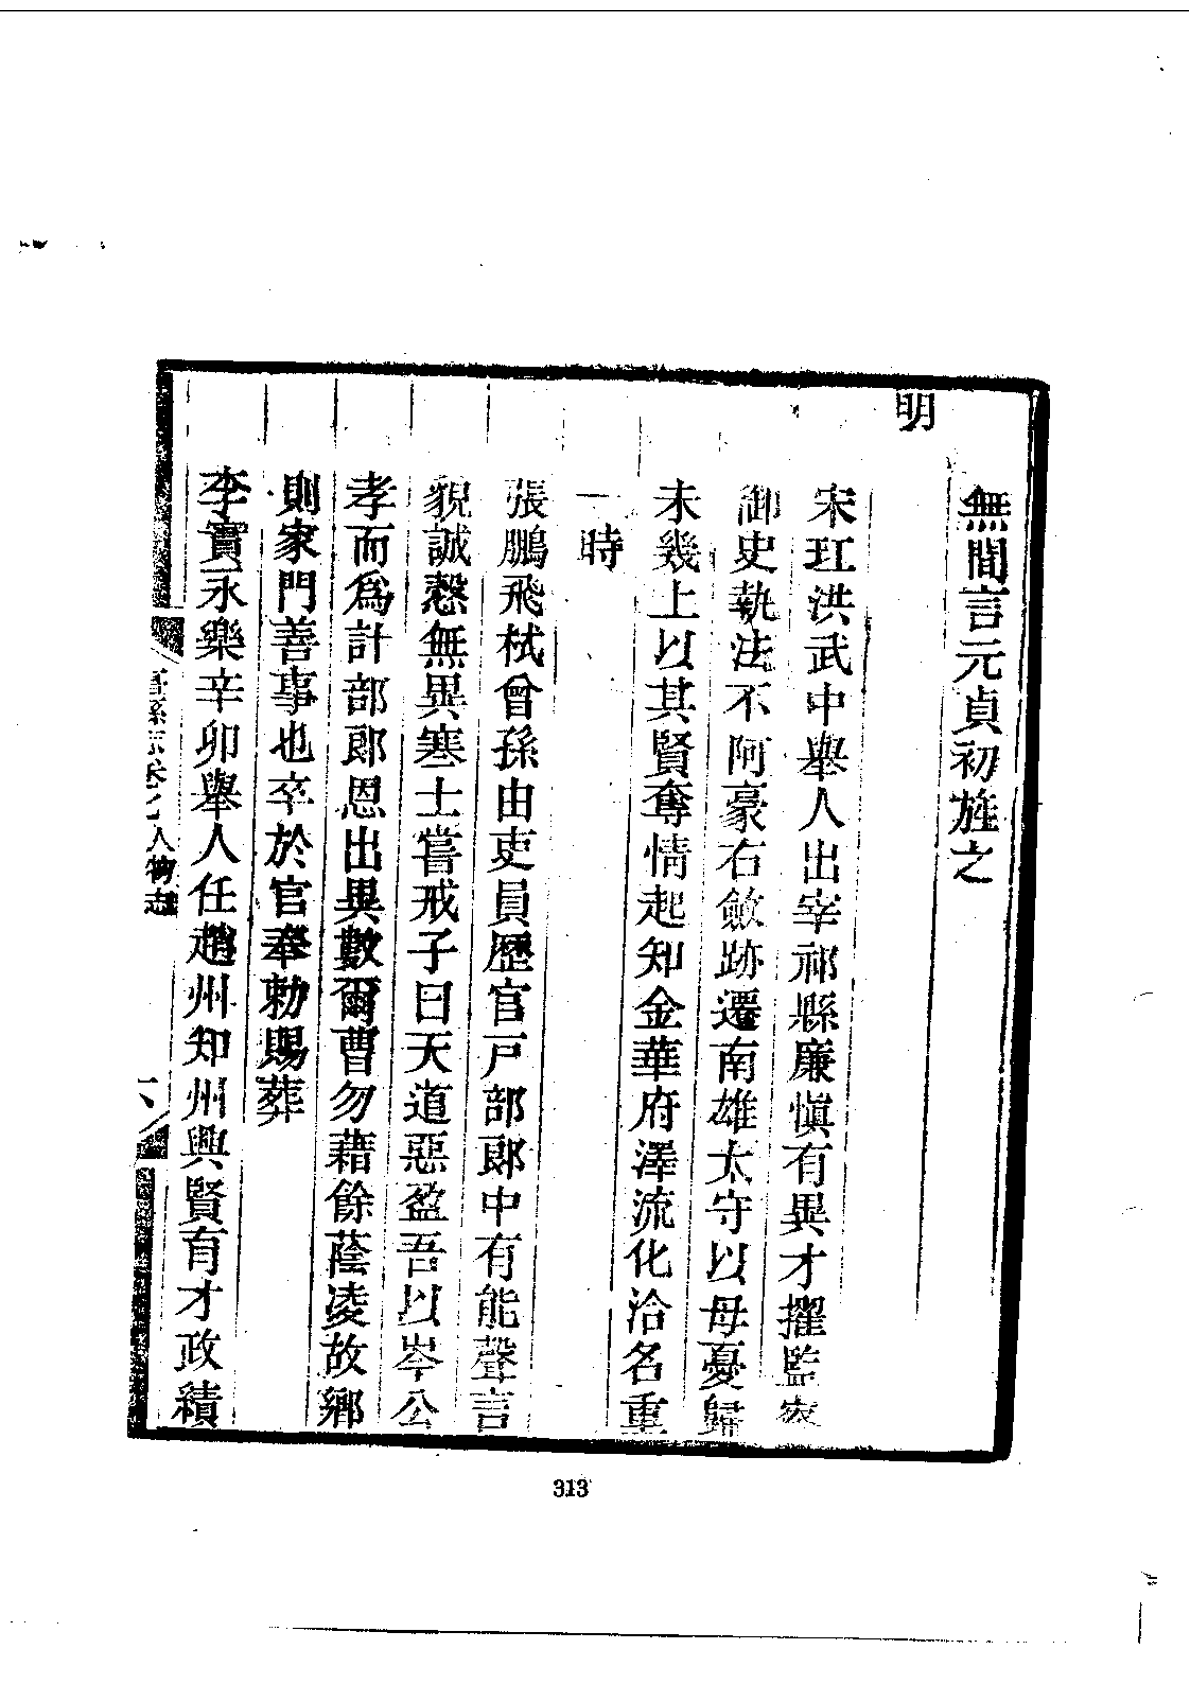 無間言元貞初旌之
明
宋玒洪武中舉人出宰祁縣廉慎有異才擢監察
御史執法不阿豪右斂跡遷南雄太守以母憂歸
未幾上以其賢奪情起知金華府澤流化洽名重
一時
張鵬飛栻曾孫由吏員歷官戸部郎中有能聲言
貌誠愨無異寒士嘗戒子曰天道惡盈吾以岑公
孝而爲計部郎恩出異數爾曹勿藉餘蔭凌故鄉
則家門善事也卒於官奉勅賜葬
李實永樂辛卯舉人任趙州知州興賢育才政績
縣志卷之人物志
313